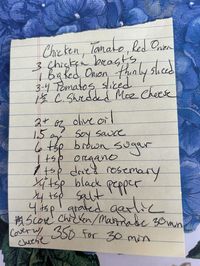 Chicken, Tomato, Red Onion
3 chicken breasts
1 baked Onion thinly sliced
3-4 Tomatos sliced
1½ C. Shredded Moz Cheese
2+ oz olive oil
1.5 oz soy sauce
6 tsp brown sugar
1 tsp oregano
1 tsp dried rosemary
¼ tsp black pepper
¼ tsp salt
4 tsp grated garlic
Score Chicken/Marinade 30 min
Cover w/ cheese 350 for 30 min